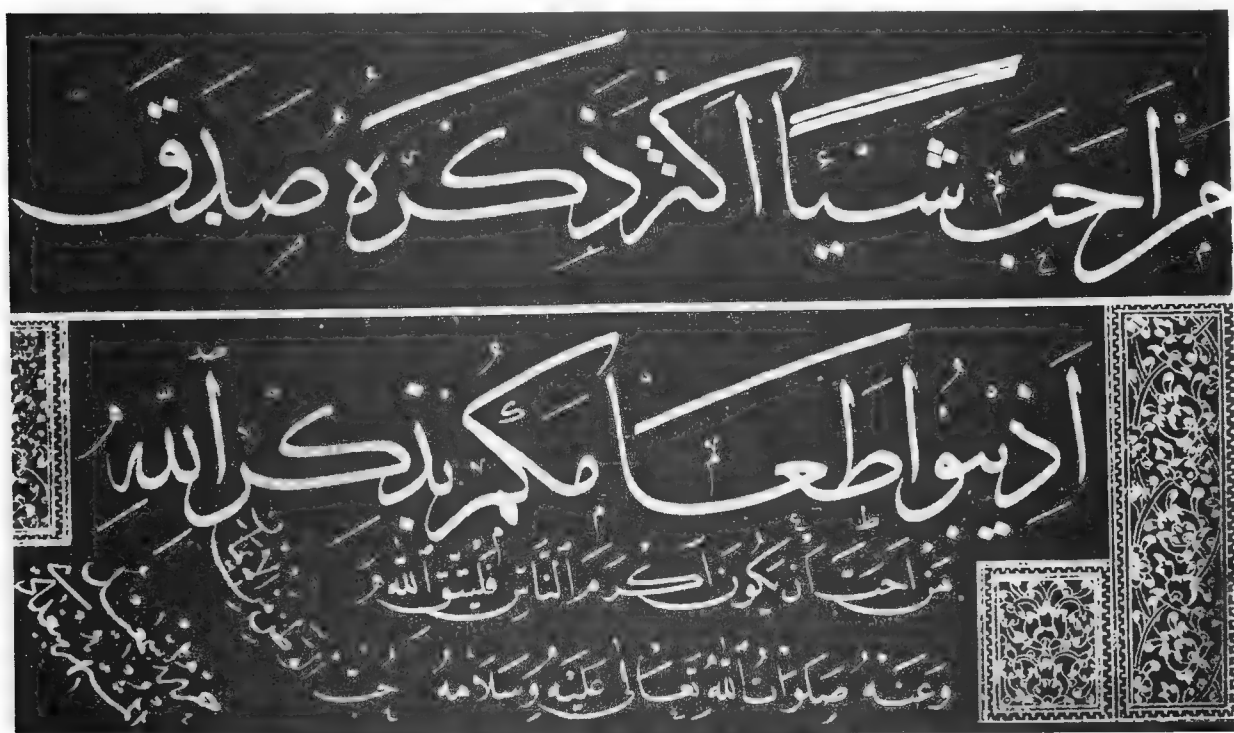 مَنْ اَحَبَّ شَيْـًٔا اَكْثَرَ ذِكْرَهُ صَدَقَ
اَذِيبُوا طَعَامَكُمْ بِذِكْرِ اللّٰهِ
مَنْ اَحَبَّ اَنْ يَكُونَ اَكْرَمَ النَّاسِ فَلْيَتَّقِ اللّٰهَ
وَعَنْهُ صَلَوَاتُ اللّٰهِ تَعَالٰى عَلَيْهِ وَسَلَامُهُ حُبُّ